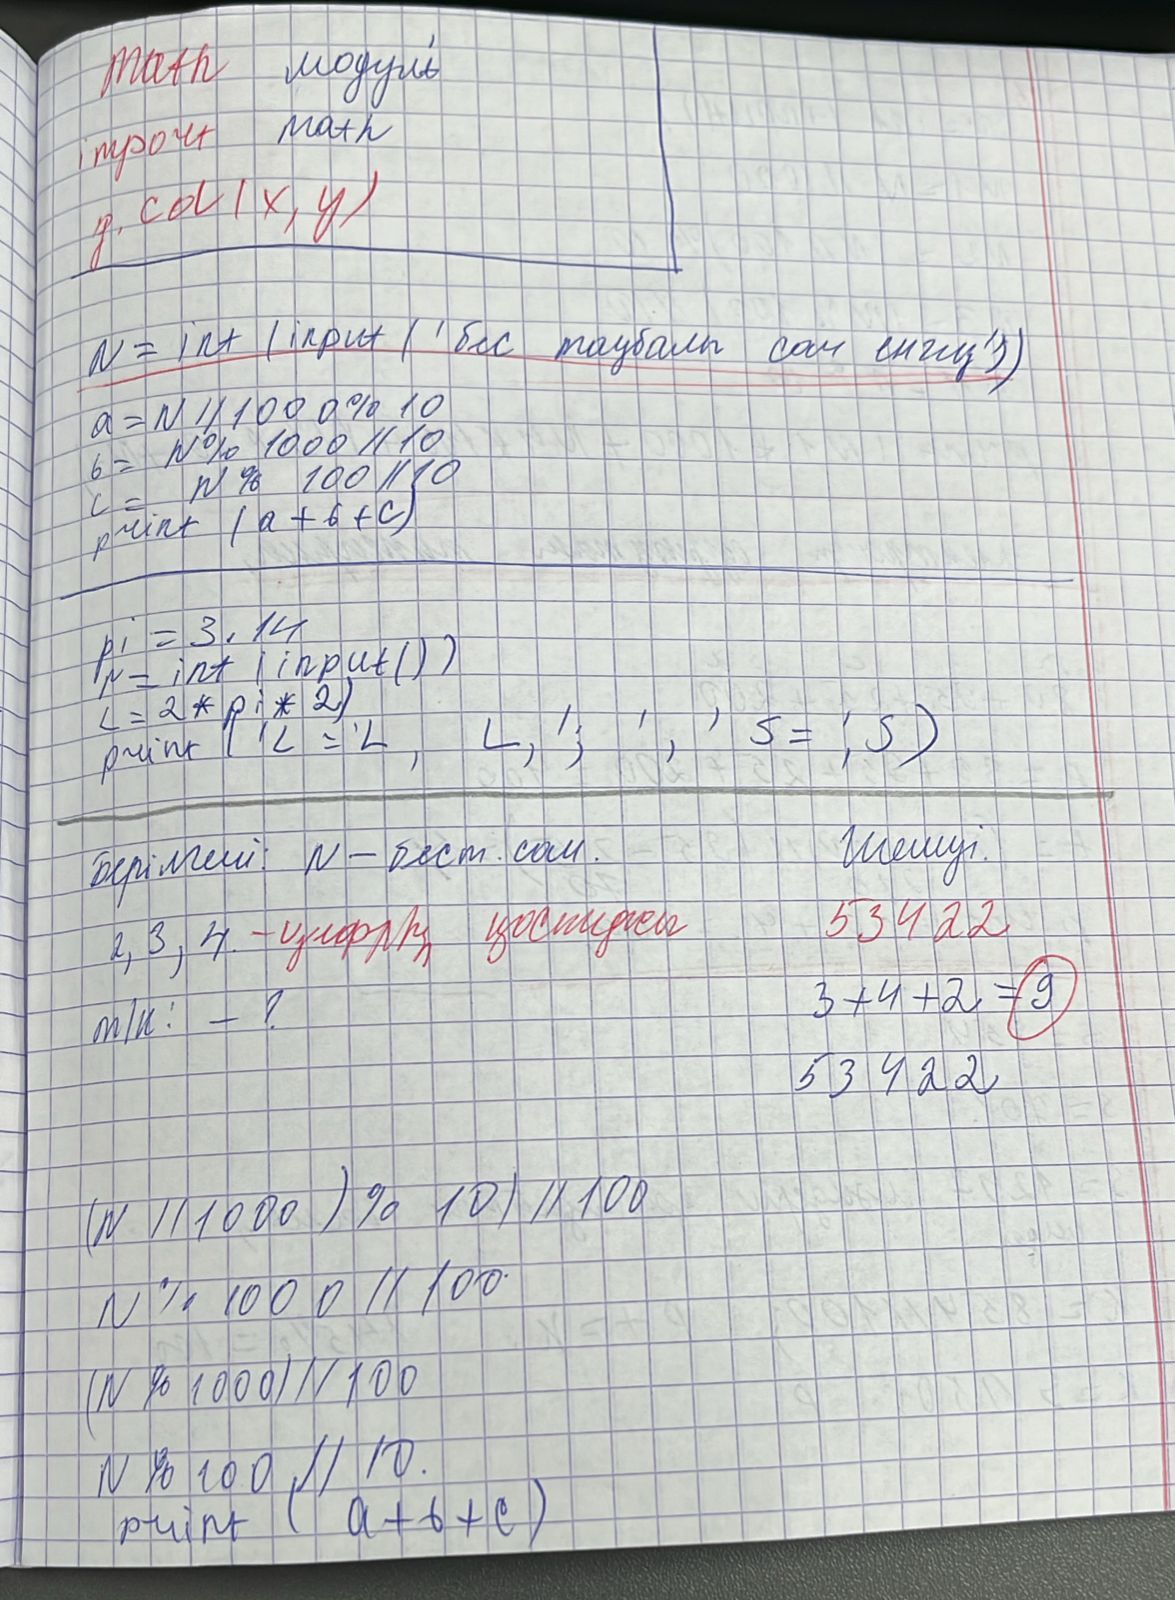 Math модуль
import math
g. cd(x, y)
N = int (input ('бес таңбалы сан енгіз'))
a = N // 1000 % 10
b = N % 1000 // 10
c = N % 100 // 10
print (a + b + c)
pi = 3.14
r = int (input())
L = 2 * pi * 2)
print ('L = 'L, L, '; ', ' S = ', S)
Берілгені: N - бест. сан. Шешуі.
2, 3, 4. - цифрлң қосындысы 53422
т/к: - ? 3 + 4 + 2 = 9
53422
(N // 1000) % 10) // 100
N % 1000 // 100
(N % 1000) // 100
N % 100 // 10.
print (a + b + c)